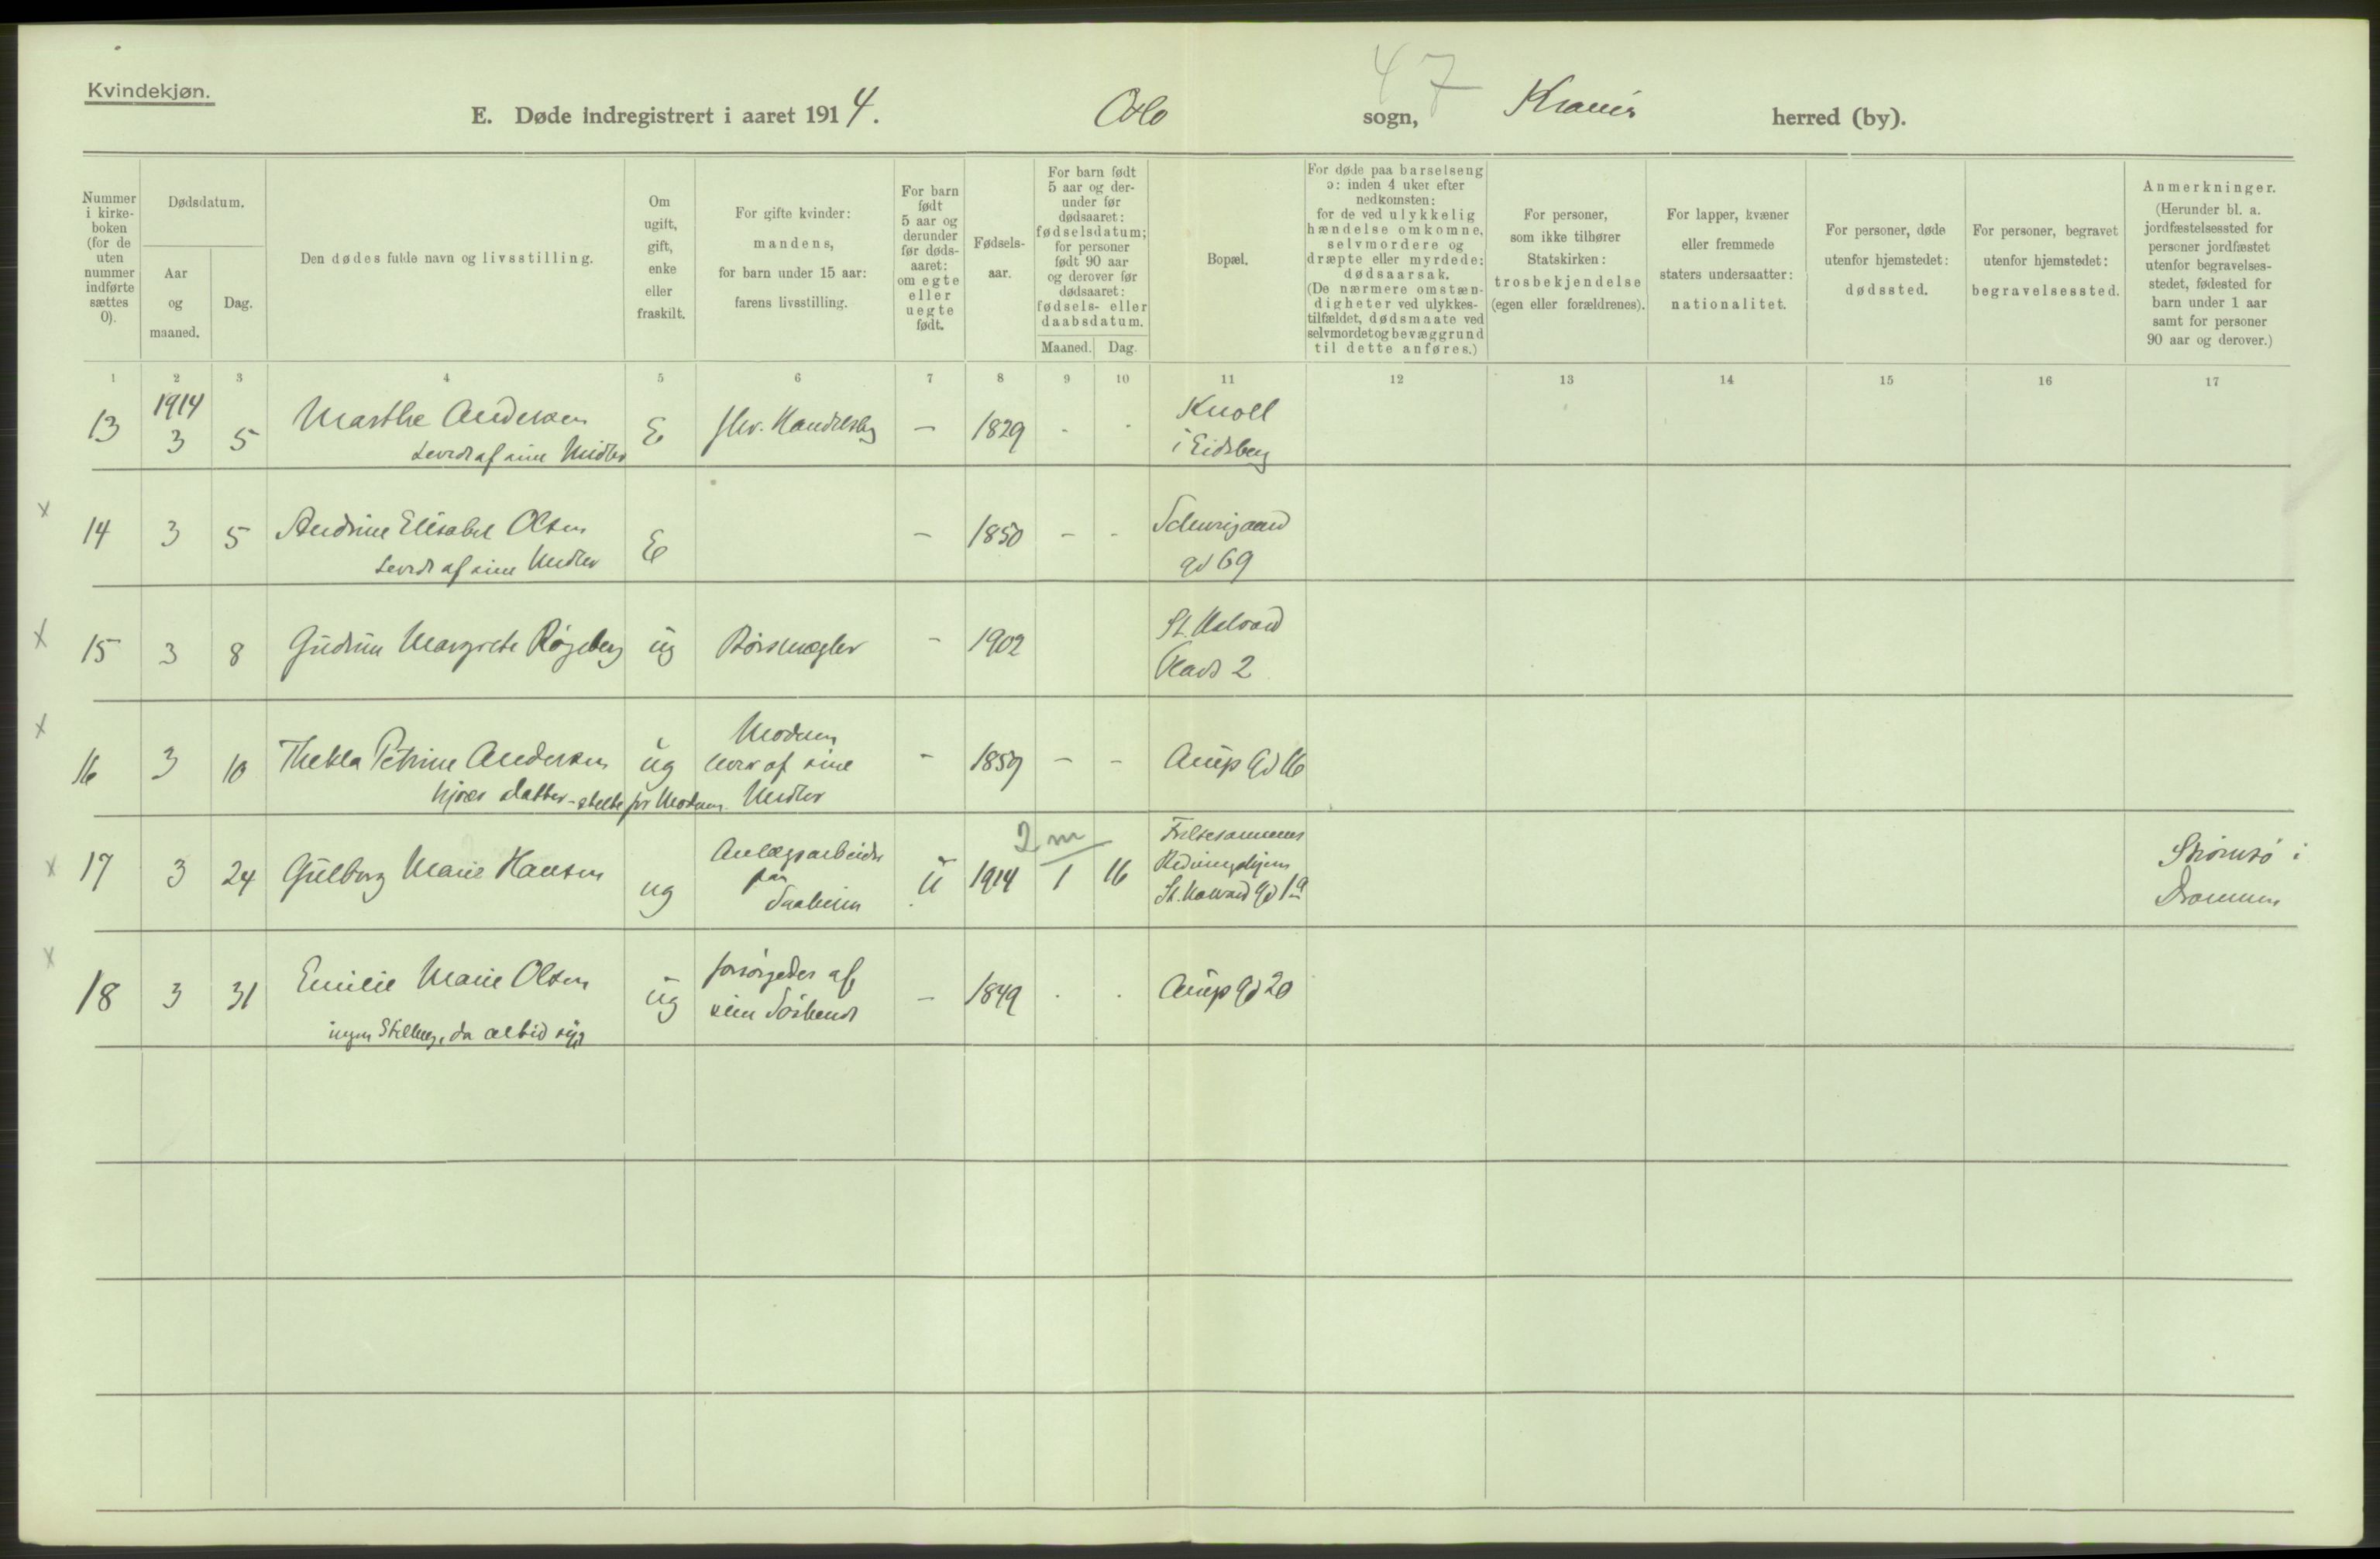 Kvindekjøn.
47
E. Døde indregistrert i aaret 1914. Oslo sogn, Krania herred (by).
Nummer i kirke-boken (for de uten nummer indførte sættes 0).
Dødsdatum.
Aar og maaned.
Dag.
Den dødes fulde navn og livsstilling.
Om ugift, gift, enke eller fraskilt.
For gifte kvinder: mandens, for barn under 15 aar: farens livsstilling.
For barn født 5 aar og derunder før døds-aaret: om egte eller uegte født.
Fødsels-aar.
For barn født 5 aar og der-under før dødsaaret: fødselsdatum; for personer født 90 aar og derover før dødsaaret: fødsels- eller daabsdatum.
Maaned. Dag.
Bopæl.
For døde paa barselseng ɔ: inden 4 uker efter nedkomsten: for de ved ulykkelig hændelse omkomne, selvmordere og dræpte eller myrdede: dødsaarsak. (De nærmere omstæn-digheter ved ulykkes-tilfældet, dødsmaate ved selvmordet og bevæggrund til dette anføres.)
For personer, som ikke tilhører Statskirken: trosbekjendelse (egen eller forældrenes).
For lapper, kvæner eller fremmede staters undersaatter: nationalitet.
For personer, døde utenfor hjemstedet: dødssted.
For personer, begravet utenfor hjemstedet: begravelsessted.
Anmerkninger. (Herunder bl. a. jordfæstelsessted for personer jordfæstet utenfor begravelses-stedet, fødested for barn under 1 aar samt for personer 90 aar og derover.)
1 2 3 4 5 6 7 8 9 10 11 12 13 14 15 16 17
1914
13 3 5 Marthe Andersen E Handelsbg — 1829 - - Knoll
Levede af sine Midler i Eidsberg
x 14 3 5 Andrine Elisabet Olsen E — 1850 — - Schweigaard
Levede af sine Midler gd 69
x 15 3 8 Gudrun Margrete Røgeberg ug Børsmægler — 1902 St. Halvard
Plads 2
x 16 3 10 Thekla Petrine Andersen ug Modern lever af sine Midler — 1859 — — Arup Gd 16
hjvær datter - stelte for Modern
2 m
x 17 3 24 Gulborg Marie Hansen ug Anlægsarbeider paa Saaheim U 1914 1 16 Frelsesarmeens Redningshjem St. Halvard Gd 1a Strømsø i Drammen
x 18 3 31 Emilie Marie Olsen ug forsørgedes af sine Søskende — 1849 . . Arup Gd 20
ingen Stilling, da altid syg